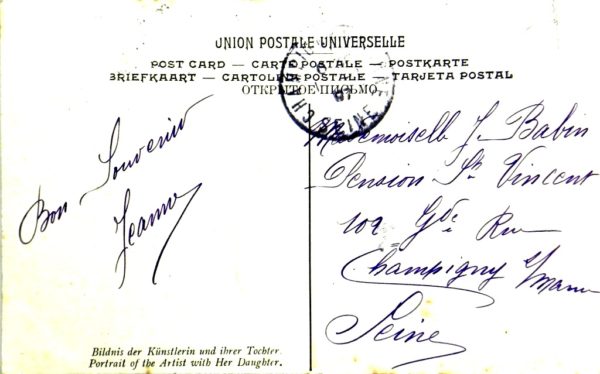 UNION POSTALE UNIVERSELLE
POST CARD — CARTE POSTALE — POSTKARTE
BRIEFKAART — CARTOLINA POSTALE — TARJETA POSTAL
ОТКРЫТОЕ ПИСЬМО
CHAMPIGNY SEINE
Bon Souvenir
Jeanne
Mademoiselle J. Babin
Pension St Vincent
102 Gde Rue
Champigny s/marne
Seine
Bildnis der Künstlerin und ihrer Tochter.
Portrait of the Artist with Her Daughter.